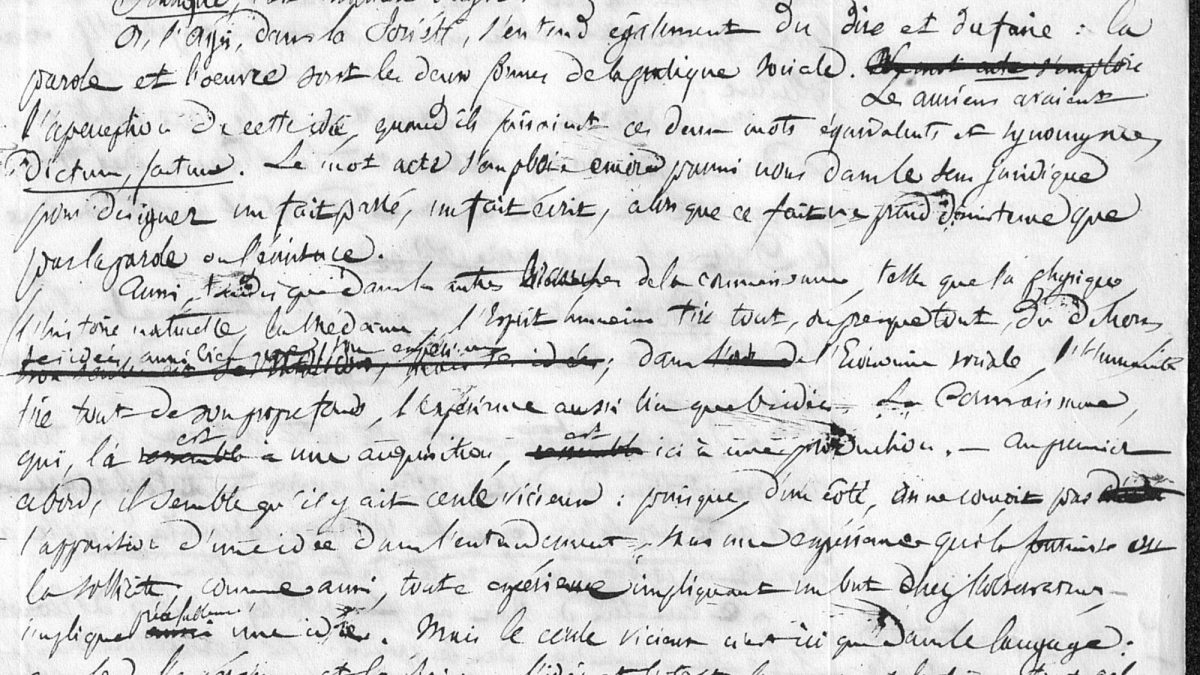 Or, l'agir, dans la Société, s'entend également du dire et du faire : la
parole et l'oeuvre sont les deux formes de la pratique sociale. Le mot acte s'emploie
Les anciens avaient
l'aperception de cette idée, quand ils faisaient ces deux mots équivalents et synonymes,
dictum, factum. Le mot acte s'emploie encore parmi nous dans le sens juridique
pour désigner un fait passé, un fait écrit, alors que ce fait ne prend d'existence que
par la parole ou l'écriture.
Aussi, tandis que dans les autres branches de la connaissance, telles que la physique,
l'histoire naturelle, la médecine, l'Esprit humain tire tout, ou presque tout, du dehors,
ses idées, aussi bien que son expérience
; dans l'Economie sociale, l'Humanité
tire tout de son propre fonds, l'expérience aussi bien que l'idée. La Connaissance,
est est
qui, là ressemble à une acquisition, ressemble ici à une production. — Au premier
abord, il semble qu'il y ait cercle vicieux : puisque, d'un côté, on ne conçoit pas
l'apparition d'une idée dans l'entendement, sans une expérience qui la
la sollicite, comme aussi, toute expérience impliquant un but chez l'observateur,
implique aussi une idée. Mais le cercle vicieux n'est ici que dans le langage :